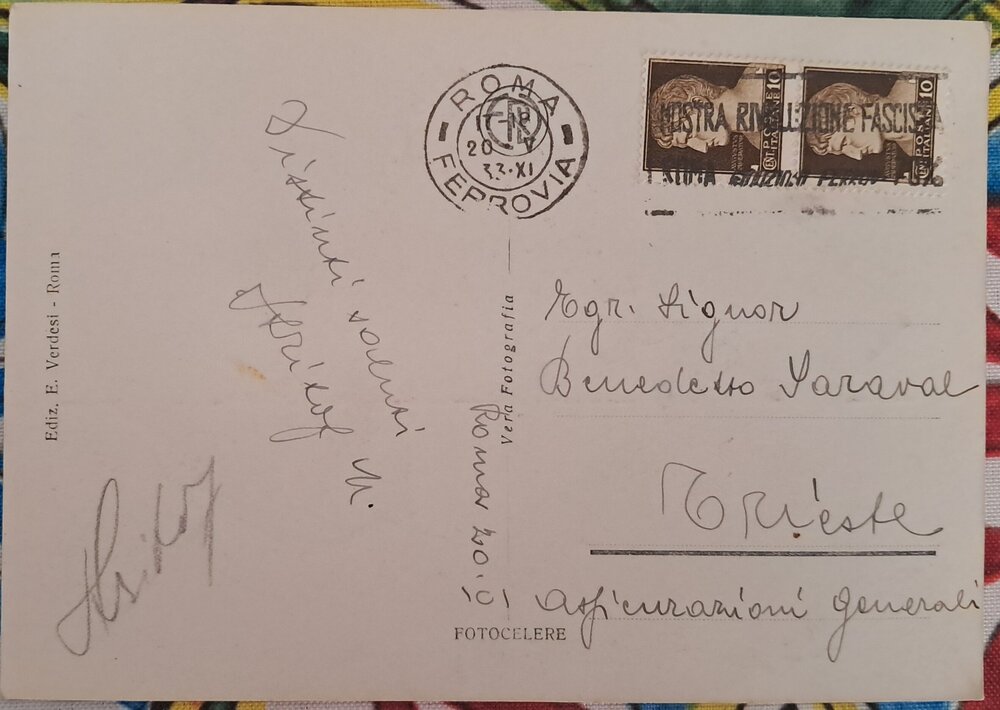 Ediz. E. Verdesi - Roma
Distinti saluti
ROMA
FERROVIA
17-18
20 V
33·XI
10
POSTE
ITALIANE
10
POSTE
ITALIANE
MOSTRA RIVOLUZIONE FASCISTA
ROMA
Vera Fotografia
Roma 20.
Egr. Signor
Benedetto Saraval
Trieste
Assicurazioni Generali
FOTOCELERE